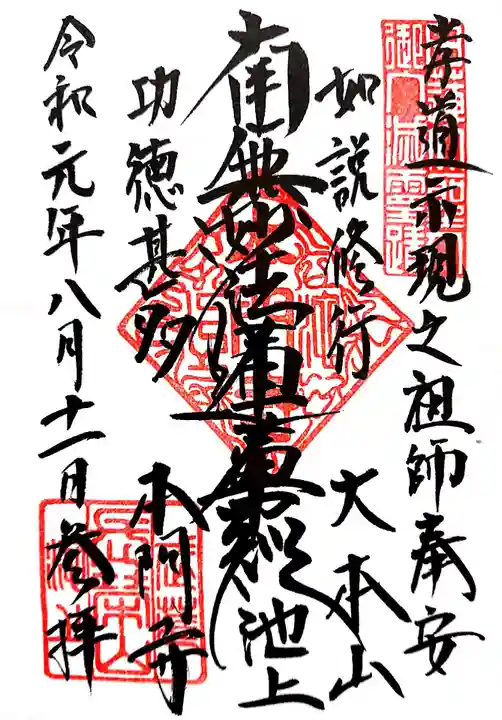 孝道示現之祖師奉安
如説修行
大本山
南無妙法蓮華経
池上
功徳甚多
本門寺
令和元年八月十一日参拝